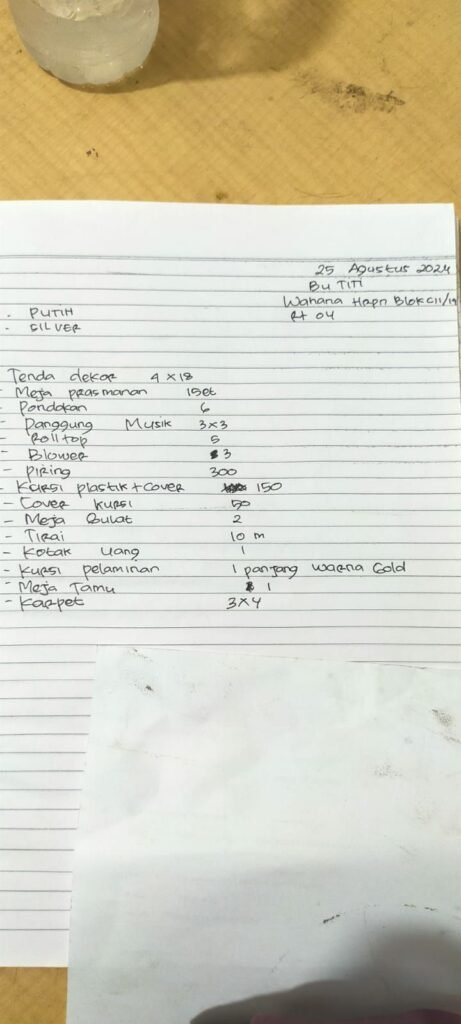 25 Agustus 2024
Bu TITI
Wahana Hrpn Blok C11/19
Rt 04
- PUTIH
- SILVER
Tenda dekor 4 x 18
- Meja prasmanan 1 set
- Pondokan 6
- Panggung Musik 3x3
- Rolltop 5
- Blower 3
- Piring 300
- Kursi plastik + cover 150
- Cover kursi 50
- Meja Bulat 2
- Tirai 10 m
- Kotak Uang 1
- Kursi pelaminan 1 panjang warna Gold
- Meja Tamu 1
- Karpet 3x4